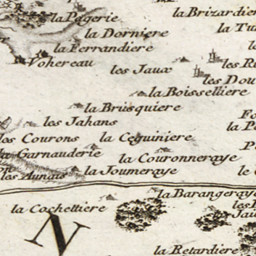 la Pagerie
la Brizardie
la Dorniere
la Tu
la Ferrandiere
Vohereau
les Jaux
les Ru
les Dou
la Boisselliere
la Brusquiere
les Jahans
la P
les Courons
la Ceguiniere
la Garnauderie
la Couronneraye
les Aunais
la Joumeraye
la Barangeraye
la Cochettiere
les
N
la Retardiere